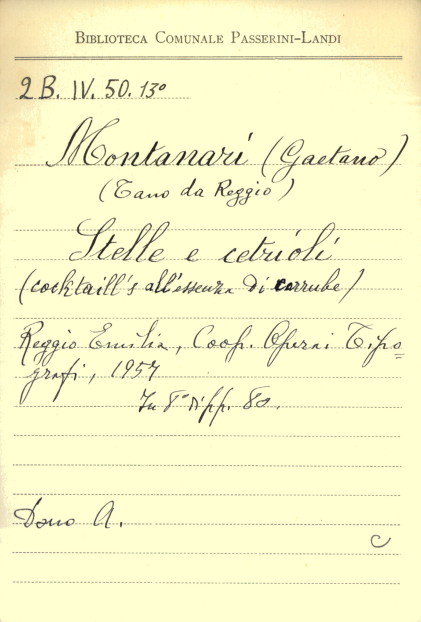 BIBLIOTECA COMUNALE PASSERINI-LANDI
2 B. IV. 50. 13º
Montanari (Gaetano)
(Tano da Reggio)
Stelle e cetrioli
(cocktaill's all'essenza di carrube)
Reggio Emilia, Coop. Operai Tipo=
grafi, 1957
In 8º di pp. 80.
Dono A.
C